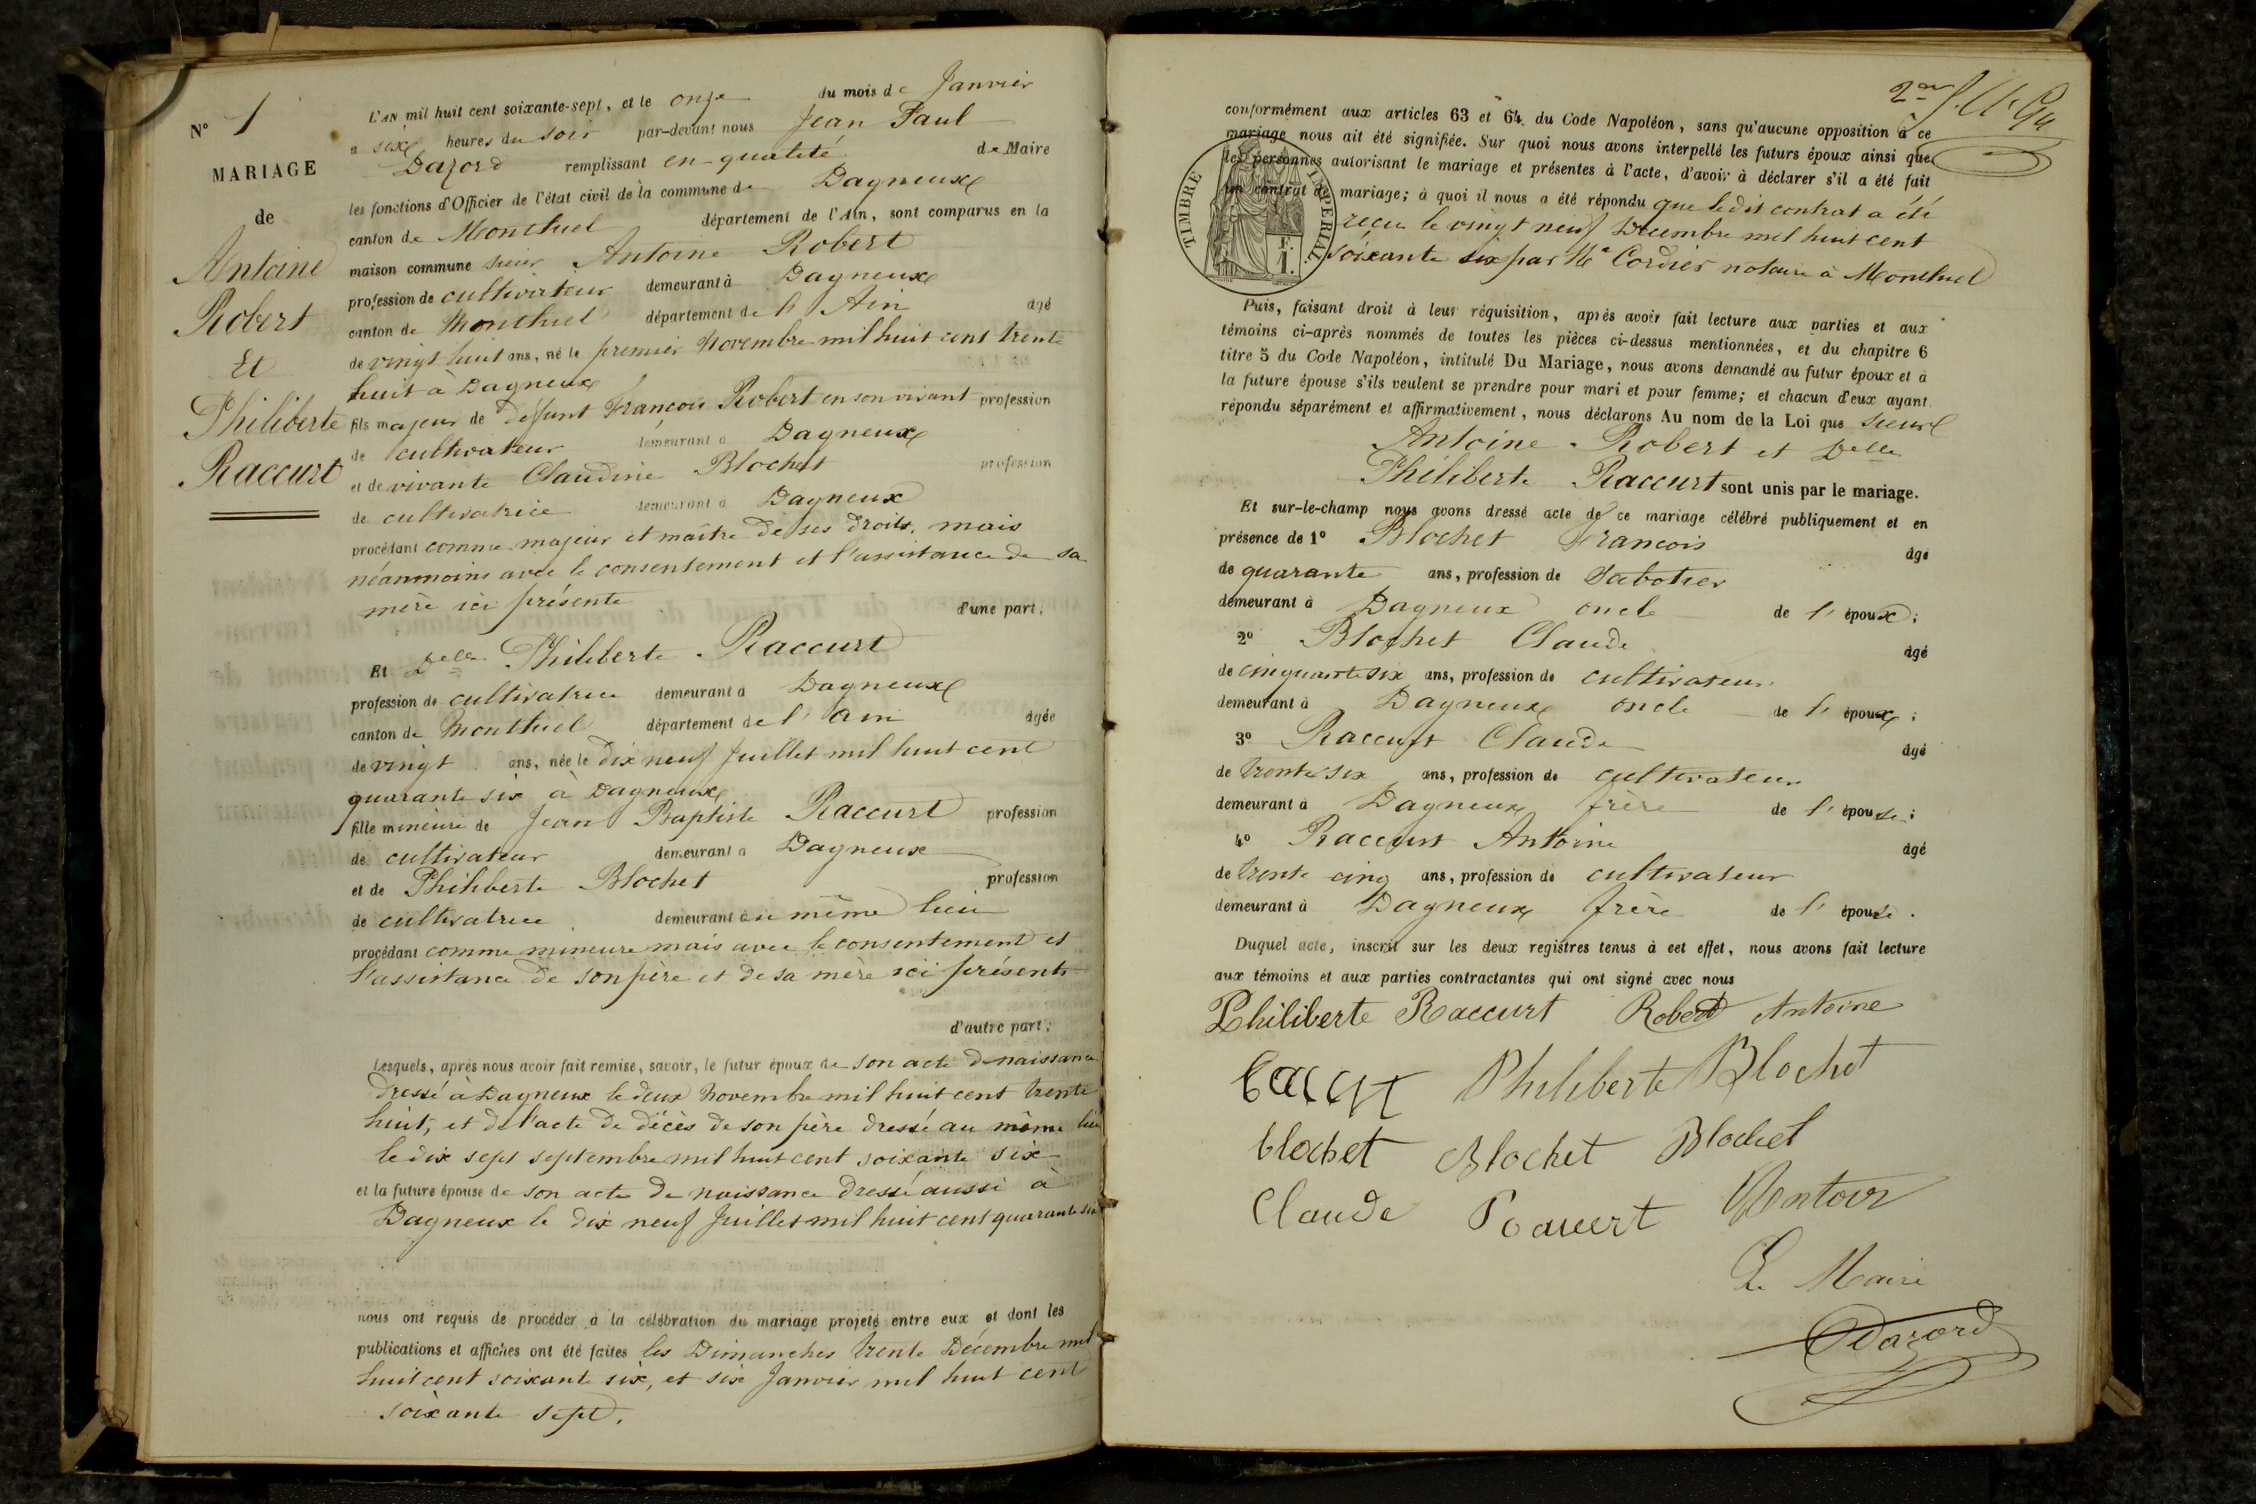 N° 1
MARIAGE
de
Antoine
Robert
Et
Philiberte
Raccurt
L'AN mil huit cent soixante-sept, et le onze du mois de Janvier
a six heures du soir par-devant nous Jean Paul
Dazord remplissant en qualité de Maire
les fonctions d'Officier de l'état civil de la commune de Dagneux
canton de Montluel département de l'Ain, sont comparus en la
maison commune sieur Antoine Robert
profession de cultivateur demeurant à Dagneux
canton de Montluel département de l'Ain âgé
de vingt huit ans, né le premier Novembre mil huit cent trente
huit à Dagneux
fils majeur de défunt François Robert en son vivant profession
de cultivateur demeurant à Dagneux
et de vivante Claudine Blochet profession
de cultivatrice demeurant à Dagneux
procédant comme majeur et maître de ses droits, mais
néanmoins avec le consentement et l'assistance de sa
mère ici présente d'une part;
Et Delle Philiberte Raccurt
profession de cultivatrice demeurant à Dagneux
canton de Montluel département de l'Ain âgée
de vingt ans, née le dix neuf Juillet mil huit cent
quarante six à Dagneux
fille mineure de Jean Baptiste Raccurt profession
de cultivateur demeurant à Dagneux
et de Philiberte Blochet profession
de cultivatrice demeurant au même lieu
procédant comme mineure mais avec le consentement et
l'assistance de son père et de sa mère ici présents
d'autre part;
Lesquels, après nous avoir fait remise, savoir, le futur époux de son acte de naissance
dressé à Dagneux le deux Novembre mil huit cent trente
huit, et de l'acte de décès de son père dressé au même lieu
le dix sept septembre mil huit cent soixante six
et la future épouse de son acte de naissance dressé aussi à
Dagneux le dix neuf Juillet mil huit cent quarante six
nous ont requis de procéder à la célébration du mariage projeté entre eux et dont les
publications et affiches ont été faites les Dimanches trente Décembre mil
huit cent soixante six, et six Janvier mil huit cent
soixante sept.
2me
conformément aux articles 63 et 64 du Code Napoléon, sans qu'aucune opposition à ce
mariage nous ait été signifiée. Sur quoi nous avons interpellé les futurs époux ainsi que
les personnes autorisant le mariage et présentes à l'acte, d'avoir à déclarer s'il a été fait
un contrat de mariage; à quoi il nous a été répondu que ledit contrat a été
reçu le vingt neuf Decembre mil huit cent
soixante six par Me Cordier notaire à Montluel
TIMBRE IMPERIAL
F.
1.
Puis, faisant droit à leur réquisition, après avoir fait lecture aux parties et aux
témoins ci-après nommés de toutes les pièces ci-dessus mentionnées, et du chapitre 6
titre 5 du Code Napoléon, intitulé Du Mariage, nous avons demandé au futur époux et à
la future épouse s'ils veulent se prendre pour mari et pour femme; et chacun d'eux ayant
répondu séparément et affirmativement, nous déclarons Au nom de la Loi que sieur
Antoine Robert et Delle
Philiberte Raccurt sont unis par le mariage.
Et sur-le-champ nous avons dressé acte de ce mariage célébré publiquement et en
présence de 1° Blochet François âgé
de quarante ans, profession de Sabotier
demeurant à Dagneux oncle de l'époux;
2° Blochet Claude âgé
de cinquante six ans, profession de cultivateur
demeurant à Dagneux oncle de l'époux;
3° Raccurt Claude âgé
de trente six ans, profession de cultivateur
demeurant à Dagneux frère de l'épouse;
4° Raccurt Antoine âgé
de trente cinq ans, profession de cultivateur
demeurant à Dagneux frère de l'épouse.
Duquel acte, inscrit sur les deux registres tenus à cet effet, nous avons fait lecture
aux témoins et aux parties contractantes qui ont signé avec nous
Philiberte Raccurt Robert Antoine
Philiberte Blochet
blochet Blochet Blochet
Claude
Le Maire
Dazord